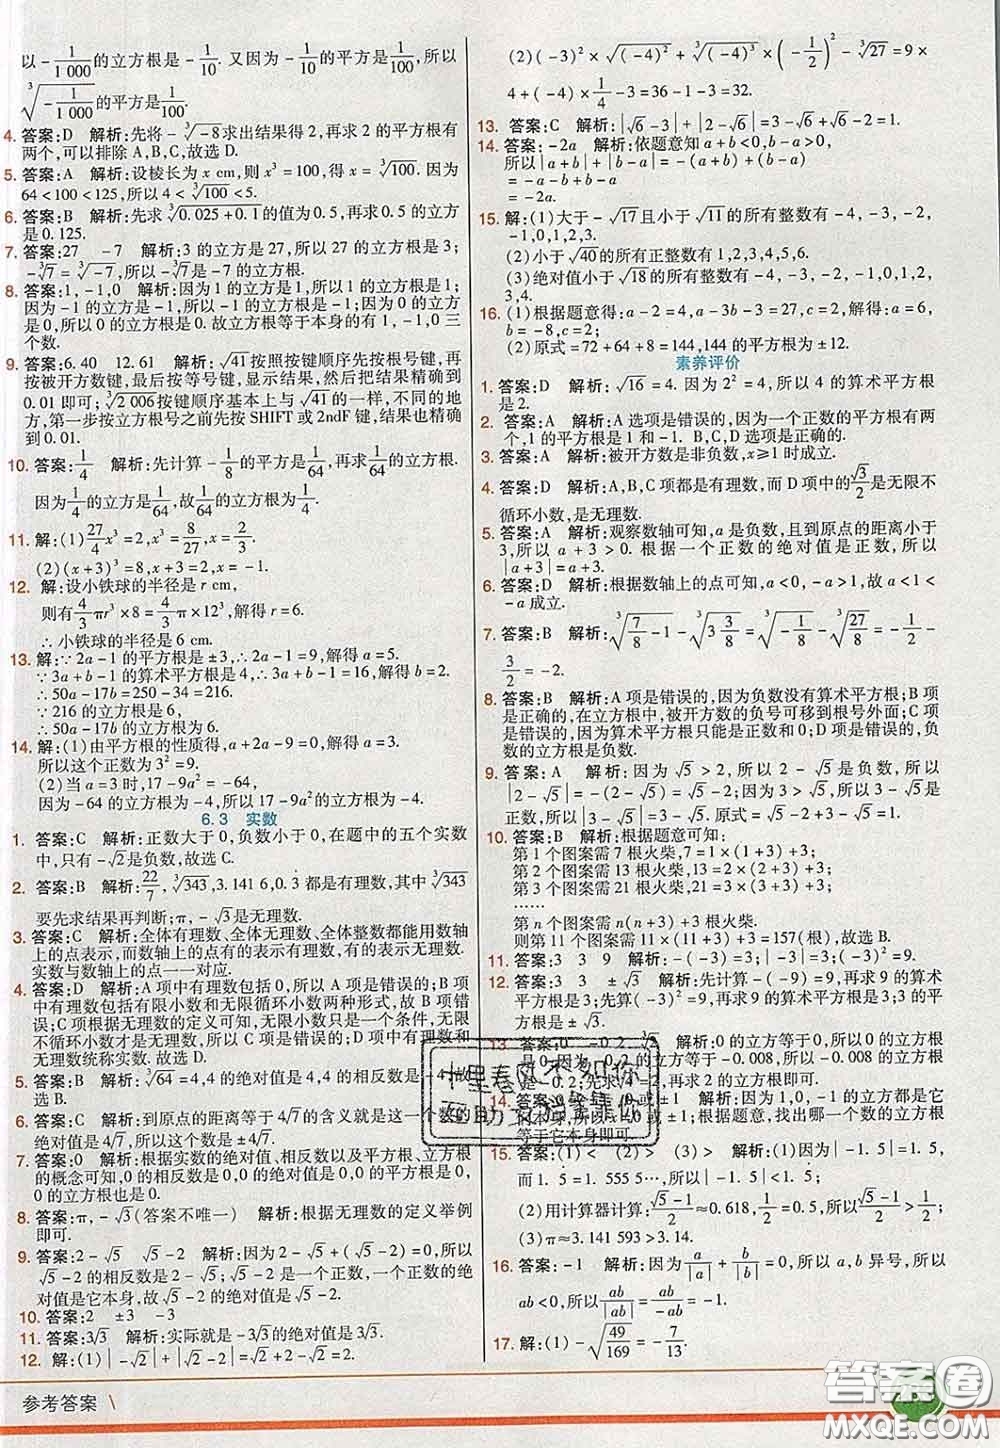 以 -1/1 000 的立方根是 -1/10. 又因为 -1/10 的平方是 1/100, 所以
∛(-1/1 000) 的平方是 1/100.
4. 答案:D 解析:先将 -∛-8 求出结果得 2,再求 2 的平方根有
两个,可以排除 A,B,C,故选 D.
5. 答案:A 解析:设棱长为 x cm,则 x³=100,得 x=∛100. 因为
64<100<125,所以 4<∛100<5.
6. 答案:B 解析:先求 ∛(0.025+0.1) 的值为 0.5,再求 0.5 的立方
是 0.125.
7. 答案:27 -7 解析:3 的立方是 27,所以 27 的立方根是 3;
-∛7=∛-7,所以 -∛7 是 -7 的立方根.
8. 答案:1,-1,0 解析:因为 1 的立方是 1,所以 1 的立方根是 1;
因为 -1 的立方是 -1,所以 -1 的立方根是 -1;因为 0 的立方
是 0,所以 0 的立方根是 0. 故立方根等于本身的有 1,-1,0 三
个数.
9. 答案:6.40 12.61 解析:√41 按照按键顺序先按根号键,再
按被开方数键,最后按等号键,显示结果,然后按照精确到
0.01 即可;∛2 006 按键顺序基本上与 √41 的一样,不同的地
方,第一步按立方根号之前先按 SHIFT 或 2ndF 键,结果也精确
到 0.01.
10. 答案:1/4 解析:先计算 -1/8 的平方是 1/64,再求 1/64 的立方根.
因为 1/4 的立方是 1/64,故 1/64 的立方根是 1/4.
11. 解:(1)27/4 x³=2,x³=8/27,x=2/3.
(2)(x+3)³=8,x+3=2,x=-1.
12. 解:设小铁球的半径是 r cm,
则有 4/3 πr³×8=4/3 π×12³,解得 r=6.
∴ 小铁球的半径是 6 cm.
13. 解:∵ 2a-1 的平方根是 ±3,∴ 2a-1=9,解得 a=5.
∵ 3a+b-1 的算术平方根是 4,∴ 3a+b-1=16,解得 b=2.
∴ 50a-17b=250-34=216.
∵ 216 的立方根是 6,
∴ 50a-17b 的立方根为 6.
14. 解:(1)由平方根的性质得,a+2a-9=0,解得 a=3.
所以这个正数为 3²=9.
(2)当 a=3 时,17-9a²=-64,
因为 -64 的立方根为 -4,所以 17-9a² 的立方根为 -4.
6.3 实数
1. 答案:C 解析:正数大于 0,负数小于 0,在题中的五个实数
中,只有 -√2 是负数,故选 C.
2. 答案:B 解析:22/7,∛343,3.141 6,0.3 都是有理数,其中 ∛343
要先求结果再判断;π,-√3 是无理数.
3. 答案:C 解析:全体有理数、全体无理数、全体整数都能用数轴
上的点表示,而数轴上的点有的表示有理数,有的表示无理数.
实数与数轴上的点一一对应.
4. 答案:D 解析:A 项中有理数包括 0,所以 A 项是错误的;B 项
中有理数包括有限小数和无限循环小数两种形式,故 B 项错
误;C 项根据无理数的定义可知,无限小数只是一个条件,无限
不循环小数才是无理数,所以 C 项是错误的;D 项中有理数和
无理数统称实数. 故选 D.
5. 答案:B 解析:∛64=4,4 的绝对值是 4,4 的相反数是 -4,故
选 B.
6. 答案:C 解析:到原点的距离等于 4√7 的含义就是这一个数的
绝对值是 4√7,所以这个数是 ±4√7.
7. 答案:0 解析:根据实数的绝对值、相反数以及平方根、立方根
的概念可知,0 的绝对值是 0,0 的相反数是 0,0 的平方根是 0,
0 的立方根也是 0.
8. 答案:π,-√3(答案不唯一) 解析:根据无理数的定义举例
即可.
9. 答案:2-√5 √5-2 解析:因为 2-√5+(√5-2)=0,所以
√5-2 的相反数是 2-√5;√5-2 是一个正数,一个正数的绝
对值是它本身,故 √5-2 的绝对值是 √5-2.
10. 答案:2 ±3 -3
11. 答案:3√3 解析:实际就是 -3√3 的绝对值是 3√3.
12. 解:(1)|-√2|+|√2-2|=√2+2-√2=2.
(2)(-3)²×√(-4)²+∛(-4)³×(-1/2)²-∛27=9×
4+(-4)×1/4-3=36-1-3=32.
13. 答案:C 解析:|√6-3|+|2-√6|=3-√6+√6-2=1.
14. 答案:-2a 解析:依题意知 a+b<0,b-a>0,
所以|a+b|+|b-a|=-(a+b)+(b-a)
=-a-b+b-a
=-2a.
15. 解:(1)大于 -√17 且小于 √11 的所有整数有 -4,-3,-2,
-1,0,1,2,3.
(2)小于 √40 的所有正整数有 1,2,3,4,5,6.
(3)绝对值小于 √18 的所有整数有 -4,-3,-2,-1,0,1,2,
3,4.
16. (1)根据题意得:a-2=4,a-3b-3=27,c=2,解得:a=6,
b=-8,c=2;
(2)原式=72+64+8=144,144 的平方根为 ±12.
素养评价
1. 答案:D 解析:√16=4. 因为 2²=4,所以 4 的算术平方根
是 2.
2. 答案:A 解析:A 选项是错误的,因为一个正数的平方根有两
个,1 的平方根是 1 和 -1. B,C,D 选项是正确的.
3. 答案:A 解析:被开方数是非负数,x≥1 时成立.
4. 答案:D 解析:A,B,C 项都是有理数,而 D 项中的 √3/2 是无限不
循环小数,是无理数.
5. 答案:A 解析:观察数轴可知,a 是负数,且到原点的距离小于
3,所以 a+3>0. 根据一个正数的绝对值是正数,所以
|a+3|=a+3.
6. 答案:D 解析:根据数轴上的点可知,a<0,-a>1,故 a<1<
-a 成立.
7. 答案:B 解析:∛(7/8-1)-∛(3 3/8)=∛(-1/8)-∛(27/8)=-1/2-
3/2=-2.
8. 答案:B 解析:A 项是错误的,因为负数没有算术平方根;B 项
是正确的,在立方根中,被开方数的负号可移到根号外面;C 项是
错误的,因为算术平方根只能是正数和 0;D 项是错误的,负
数的立方根是负数.
9. 答案:A 解析:因为 √5>2,所以 2-√5 是负数,所以
|2-√5|=-(2-√5)=√5-2. 因为 3>√5,所以 3-√5 是
正数,所以|3-√5|=3-√5.
10. 答案:B 解析:根据题意可知:
第 1 个图案需 7 根火柴,7=1×(1+3)+3;
第 2 个图案需 13 根火柴,13=2×(2+3)+3;
第 3 个图案需 21 根火柴,21=3×(3+3)+3;
……
第 n 个图案需 n(n+3)+3 根火柴.
则第 11 个图案需 11×(11+3)+3=157(根),故选 B.
11. 答案:3 3 9 解析:-(-3)=3,|-3|=3,(-3)²=9.
12. 答案:3 3 ±√3 解析:先计算 -(-9)=9,再求 9 的算术
平方根是 3;先算(-9)²=81,再求 81 的算术平方根;
平方根是 ±√3.
13. 答案:0 -0.2 解析:0 的立方等于 0,所以 0 的立方根
是 0,因为 -0.2 的立方等于 -0.008,所以 -0.008 的立方根
是 -0.2;先求 ,再求 2 的立方根即可.
14. 解析:根据题意,找出哪一个数的立方根
等于它本身即可.
15. 答案:(1)< (2)> (3)> 解析:(1)因为|-1.5|=1.5,
而 1.5=1.555 5…,所以|-1.5|<1.5;
(2)用计算器计算:(√5-1)/2≈0.618,1/2=0.5,所以 (√5-1)/2>1/2;
(3)π≈3.141 593>3.14.
16. 答案:-1 解析:因为 a/|a|+b/|b|=0,所以 a,b 异号,所以
ab<0,所以 ab/|ab|=ab/-ab=-1.
17. 解:(1)-√(49/169)=-7/13.
参考答案
十里春风不如你
答案圈
MXQE.COM